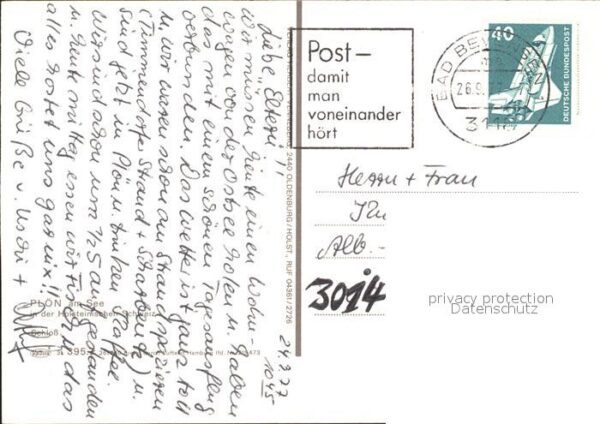 24.9.77
10 45
Liebe Eltern!!
Wir müssen heute einen Wohn
wagen von der Ostsee holen u. haben
das mit einem schönen Tagesausflug
verbunden. Das Wetter ist ganz toll
u. wir waren schon am Strand spazieren
(Timmendorfer Strand + Scharbeutz) u.
sind jetzt in Plön u. trinken Kaffee.
Wir sind schon um 1/2 5 aufgestanden
u. heute mittag essen wir Fisch u. das
alles kostet uns gar nix!!
Viele Grüße v. Uschi +
PLÖN am See
in der Holsteinischen Schweiz
Schloß
2440 OLDENBURG/HOLST., RUF 04361/2726
Post–
damit
man
voneinander
hört
BAD
26.9.
40
DEUTSCHE BUNDESPOST
Herrn + Frau
Alb.-
3014
privacy protection
Datenschutz